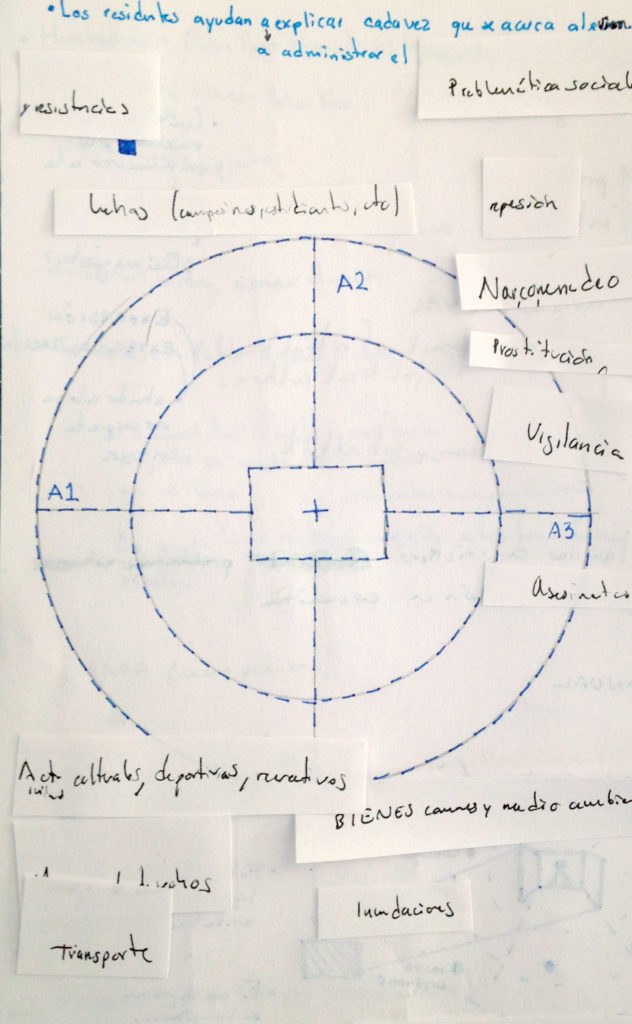 •Los residentes ayudan a explicar cada vez que se acerca
a administrar el
Problemática social
y resistencias
Luchas (campesinos, estudiantes, etc)
represión
A2
Narcomenudeo
Prostitución,
Vigilancia
A1
A3
Asesinatos
Act culturales, deportivas, recreativos
BIENES comunes y medio ambie
Inundaciones
Transporte